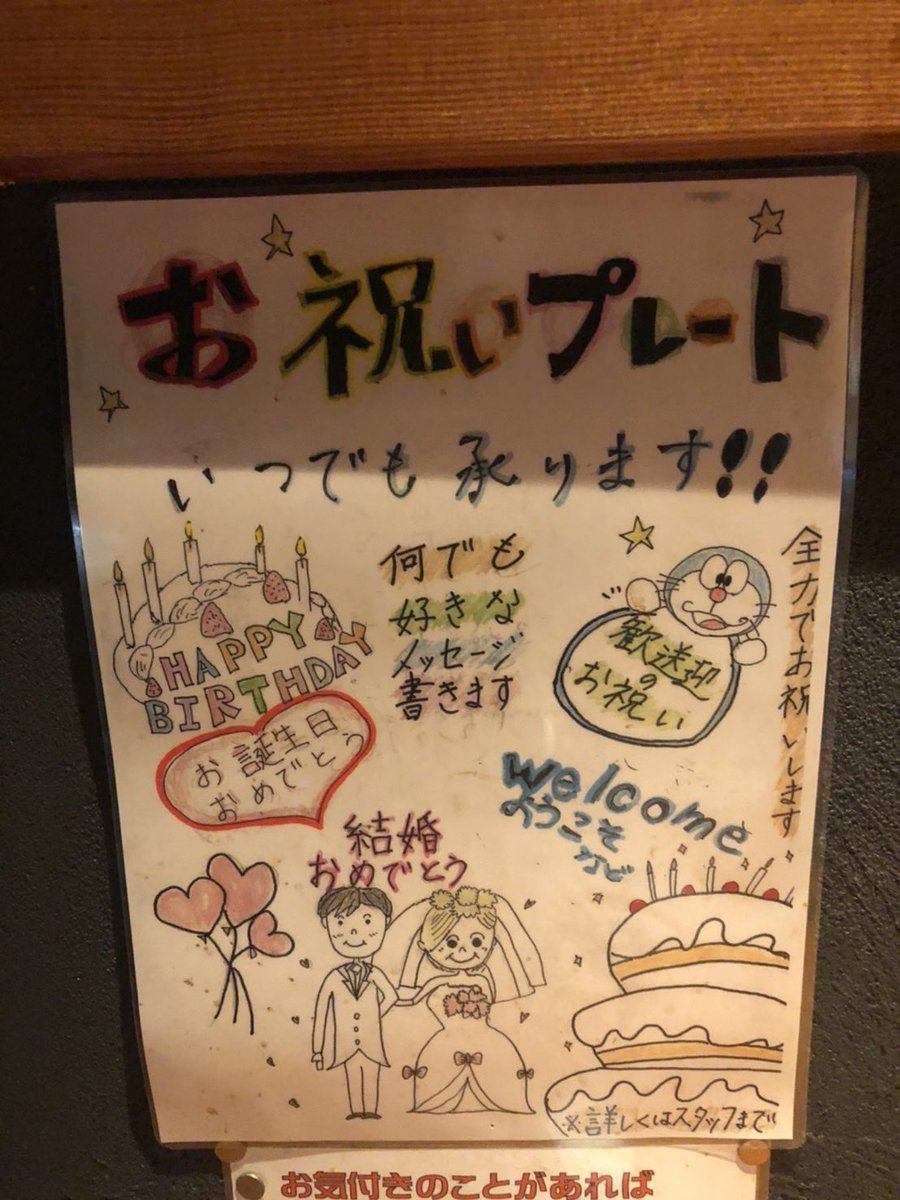 お祝いプレート
いつでも承ります!!
何でも
好きな
メッセージ
書きます
HAPPY
BIRTHDAY
お誕生日
おめでとう
歓送迎
の
お祝い
全力でお祝いします
welcome
ようこそ
など
結婚
おめでとう
※詳しくはスタッフまで
お気付きのことがあれば